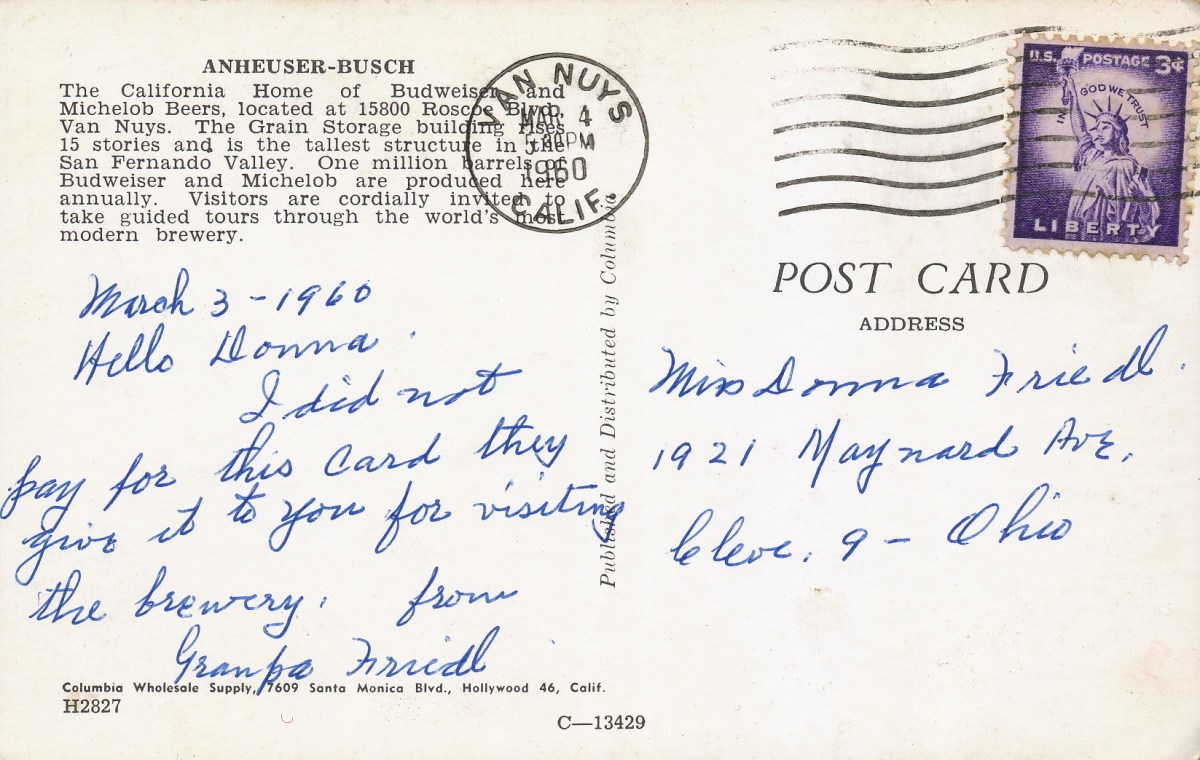 ANHEUSER-BUSCH
The California Home of Budweiser and
Michelob Beers, located at 15800 Roscoe Blvd.,
Van Nuys. The Grain Storage building rises
15 stories and is the tallest structure in the
San Fernando Valley. One million barrels of
Budweiser and Michelob are produced here
annually. Visitors are cordially invited to
take guided tours through the world's most
modern brewery.
VAN NUYS
MAR 4
PM
1960
CALIF.
U.S. POSTAGE 3¢
IN GOD WE TRUST
LIBERTY
March 3 - 1960
Hello Donna.
I did not
pay for this card they
give it to you for visiting
the brewery. from
Granpa Friedl
Published and Distributed by Columbia
POST CARD
ADDRESS
Miss Donna Friedl.
1921 Maynard Ave.
Cleve. 9 - Ohio
Columbia Wholesale Supply, 7609 Santa Monica Blvd., Hollywood 46, Calif.
H2827
C—13429